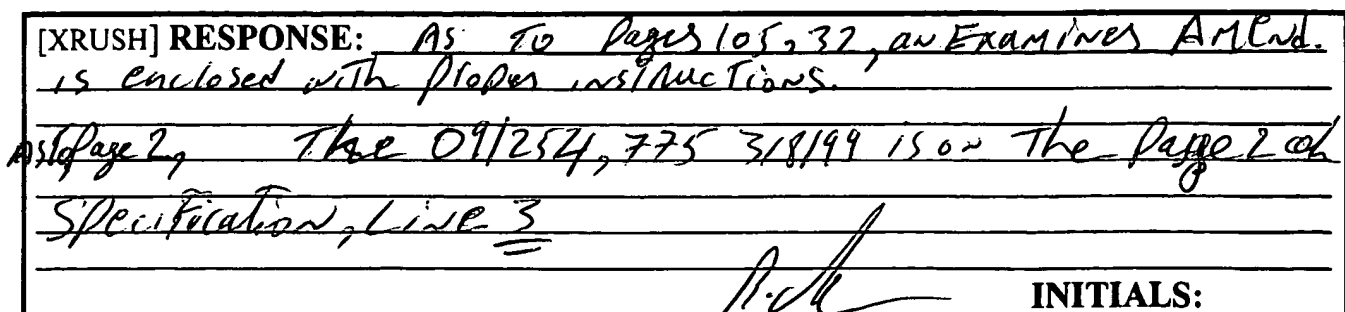 [XRUSH] RESPONSE: As to Pages 105, 32, an Examines Amend.
is enclosed with proper instructions.
As to Page 2, The 09/254,775 3/8/99 is on The Page 2 of
Specification, Line 3
INITIALS: